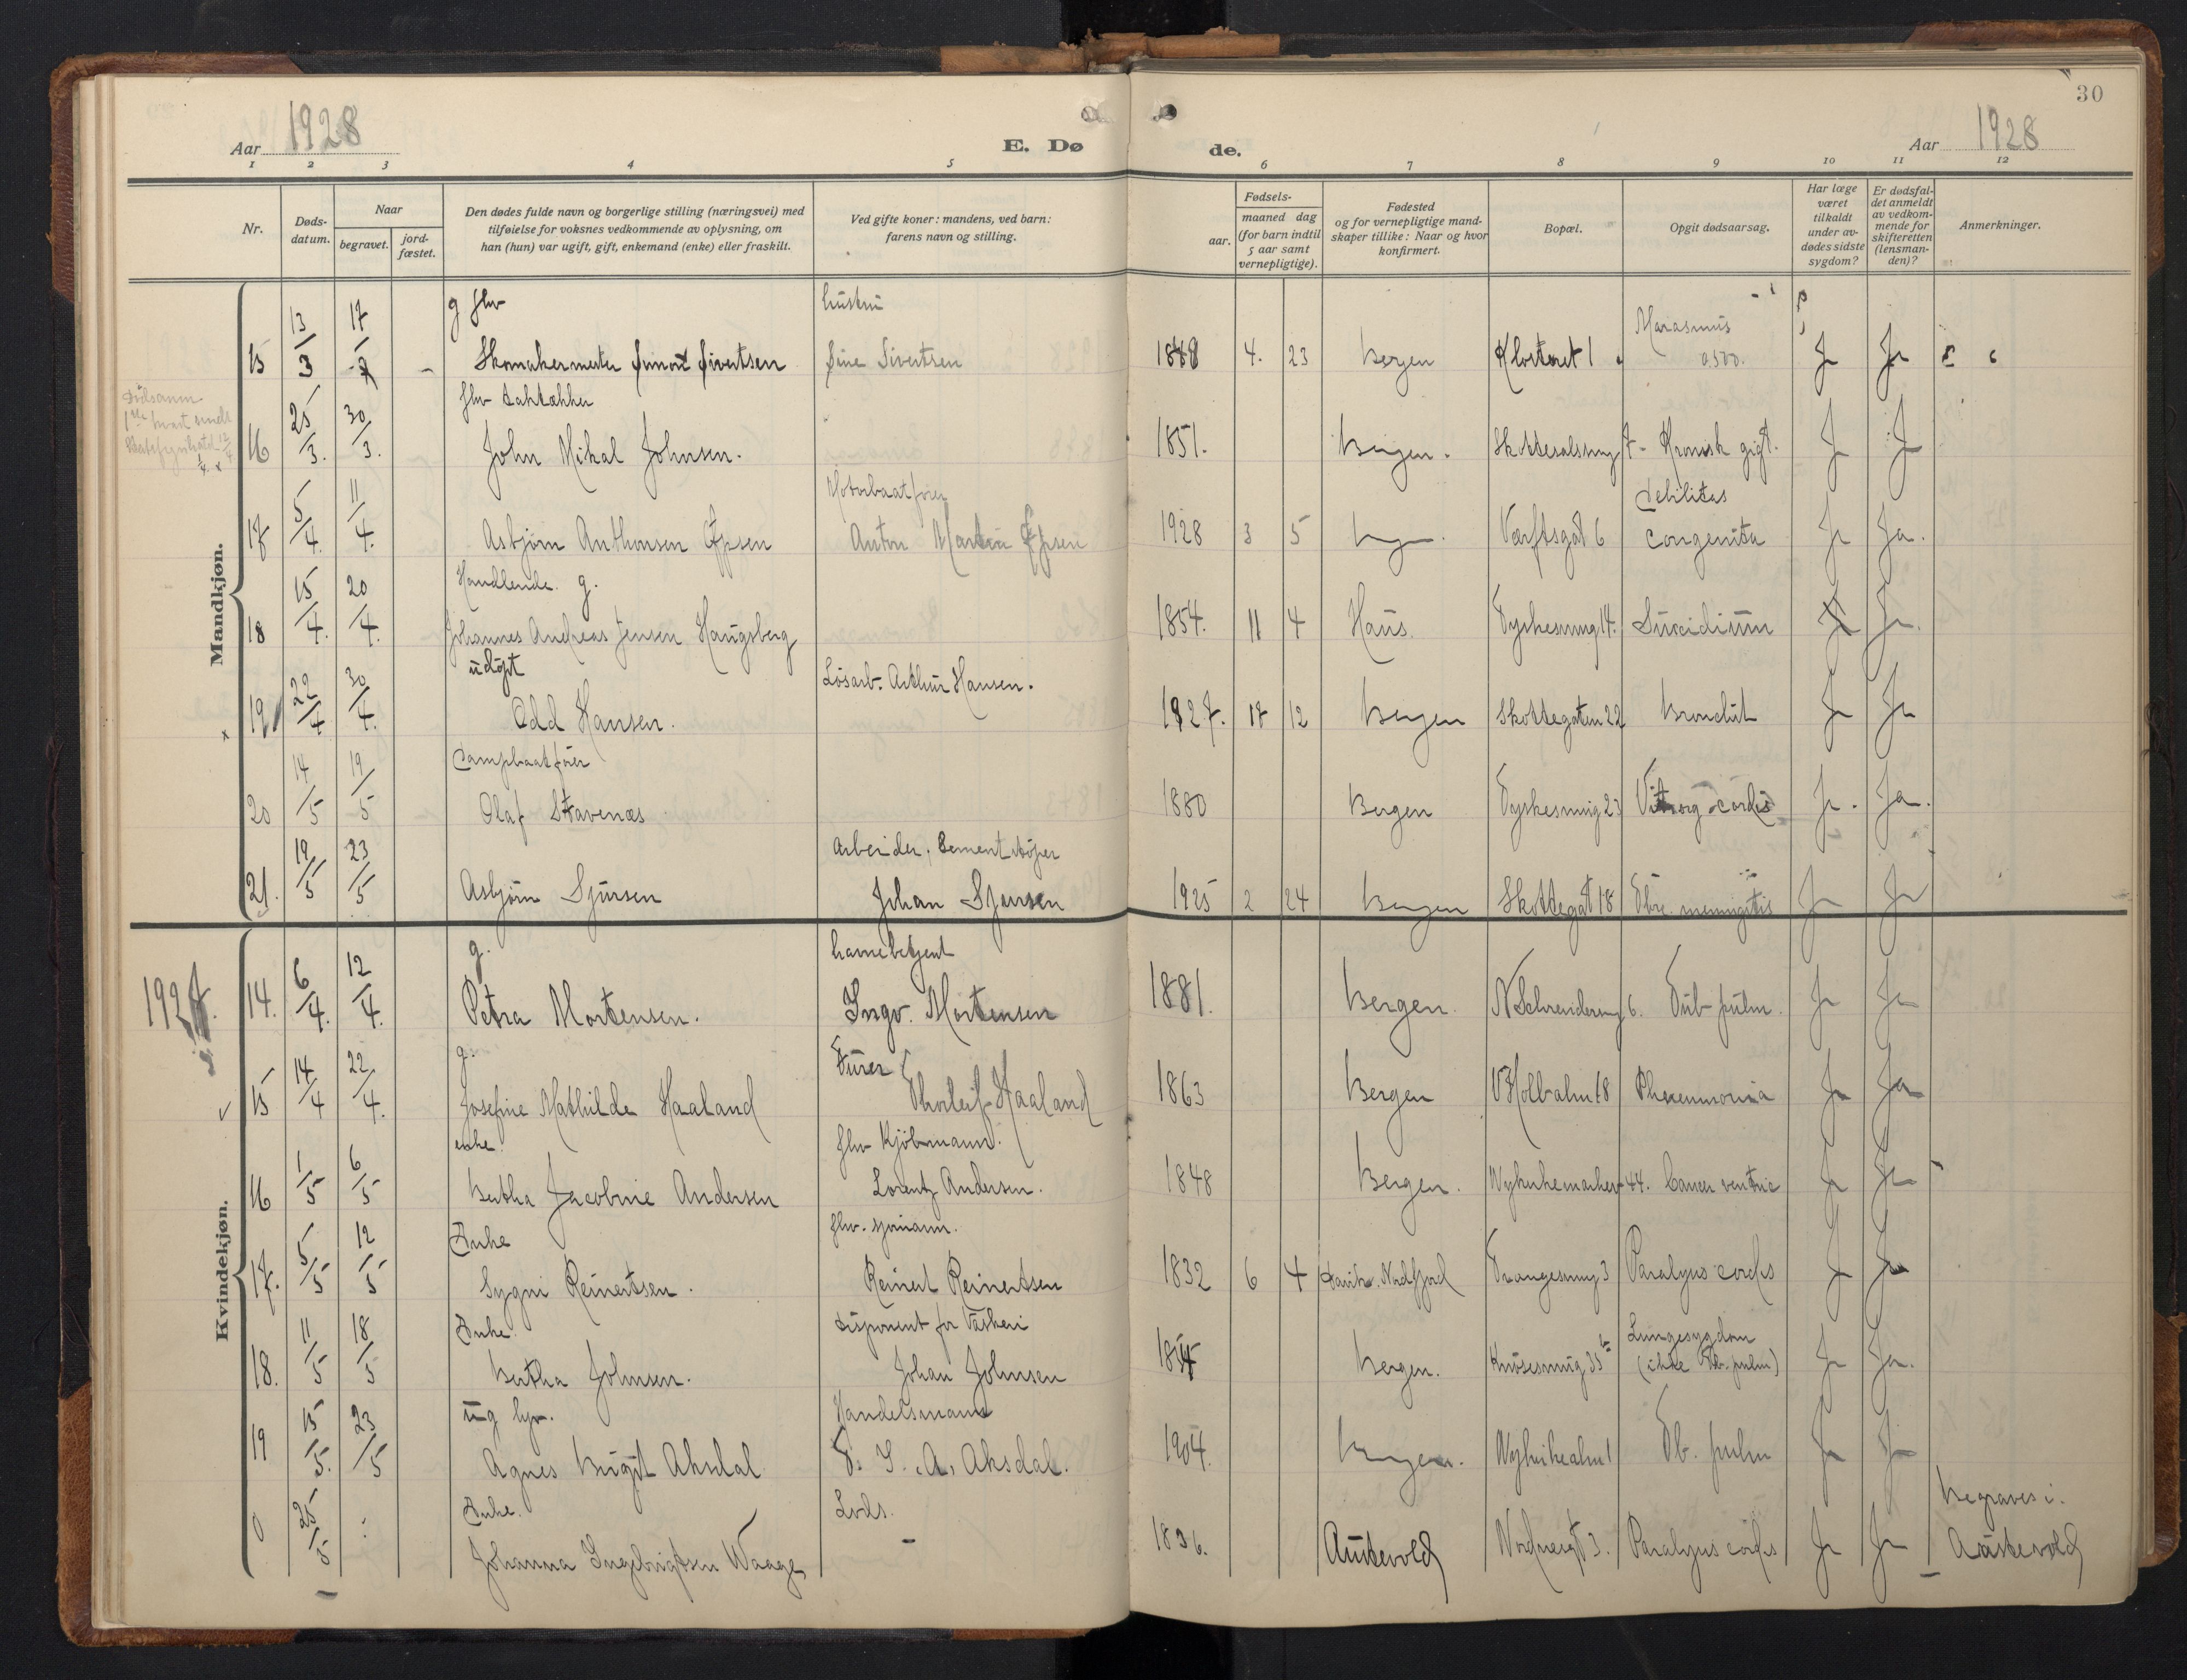 30
Aar 1928
E. Dø
de.
Aar 1928
1 2 3 4 5 6 7 8 9 10 11 12
Nr.
Døds-
datum.
Naar
begravet.
jord-
fæstet.
Den dødes fulde navn og borgerlige stilling (næringsvei) med
tilføielse for voksnes vedkommende av oplysning, om
han (hun) var ugift, gift, enkemand (enke) eller fraskilt.
Ved gifte koner: mandens, ved barn:
farens navn og stilling.
aar.
Fødsels-
maaned dag
(for barn indtil
5 aar samt
vernepligtige).
Fødested
og for vernepligtige mand-
skaper tillike: Naar og hvor
konfirmert.
Bopæl.
Opgit dødsaarsag.
Har læge
været
tilkaldt
under av-
dødes sidste
sygdom?
Er dødsfal-
det anmeldt
av vedkom-
mende for
skifteretten
(lensman-
den)?
Anmerkninger.
Mandkjøn.
g fhv hustru Marasmus
15 13/3 17/3 - Skomakermester Simon Sivertsen Sine Sivertsen 1848 4. 23 Bergen Klosteret 1 Ja Ja
fhv taktækker
16 25/3. 30/3. John Mikal Johnsen. 1851. Bergen. Skottesalsmug 7 - Kronisk gigt. J J
Motorbaatfører debilitas
17 5/4. 11/4. Asbjørn Anthonsen Anton Martin 1928 3 5 Bergen. Værftsgat 6 congenita Ja Ja.
Handlende. g.
18 15/4. 20/4. Johannes Andreas Jensen Haugsberg 1854. 11 4 Haus. Dyrkesmug 14. Suicidium Ja.
udøpt Løsarb. Arthur Hansen.
19 22/4 30/4. Odd Hansen. 1927. 12 Bergen Skottegaten 22 Bronchit Ja Ja
Dampbaatfører
20 14/5 19/5 Olaf Stavenæs 1880 Bergen Dyrkesmug 23 cordis Ja. Ja.
Arbeider, Cementstøper
21. 19/5 23/5 Asbjørn Sjursen Johan Sjursen 1925 2 24 Bergen Skottegat 18 meningitis Ja Ja
Kvindekjøn.
g. havnebetjent
14. 6/4. 12/4. Petra Mortensen. Ingv. Mortensen 1881. Bergen. N Schreidersmug 6. Tub. pulm. Ja Ja
g. Furer
15 14/4 22/4. Josefine Mathilde Haaland Thorleif Haaland 1863 Bergen V Holbalm 18 Pneumonia Ja Ja
enke. fhv Kjøbmann.
16 1/5 6/5 Bertha Jacobine Andersen Lorentz Andersen. 1848 Bergen. Nykirkemarken 44. Cancer ventric Ja Ja
Enke fhv. sjømann.
17. 5/5 12/5 Sygni Reinertsen. Reinert Reinertsen 1832 6 4 Nordfjord Trangesmug 3 Paralysis cordis J Ja
Enke. disponent for Vaskeri Lungesygdom
18. 11/5 18/5 Bertha Johnsen. Johan Johnsen Bergen. Knøsesmug 35 (ikke tb. pulm) Ja Ja.
ug Handelsmann
19 15/5. 23/5 Agnes Birgit Aksdal T. I. A. Aksdal. 1904. Bergen. Nykirkealm 1 Tb. pulm Ja Ja
Enke. Lods. Begraves i.
0 25/5 Johanna Ingebrigtsen Waage - 1836. Austevold Nordnesgt 3. Paralysis cordis Ja Ja Austevold